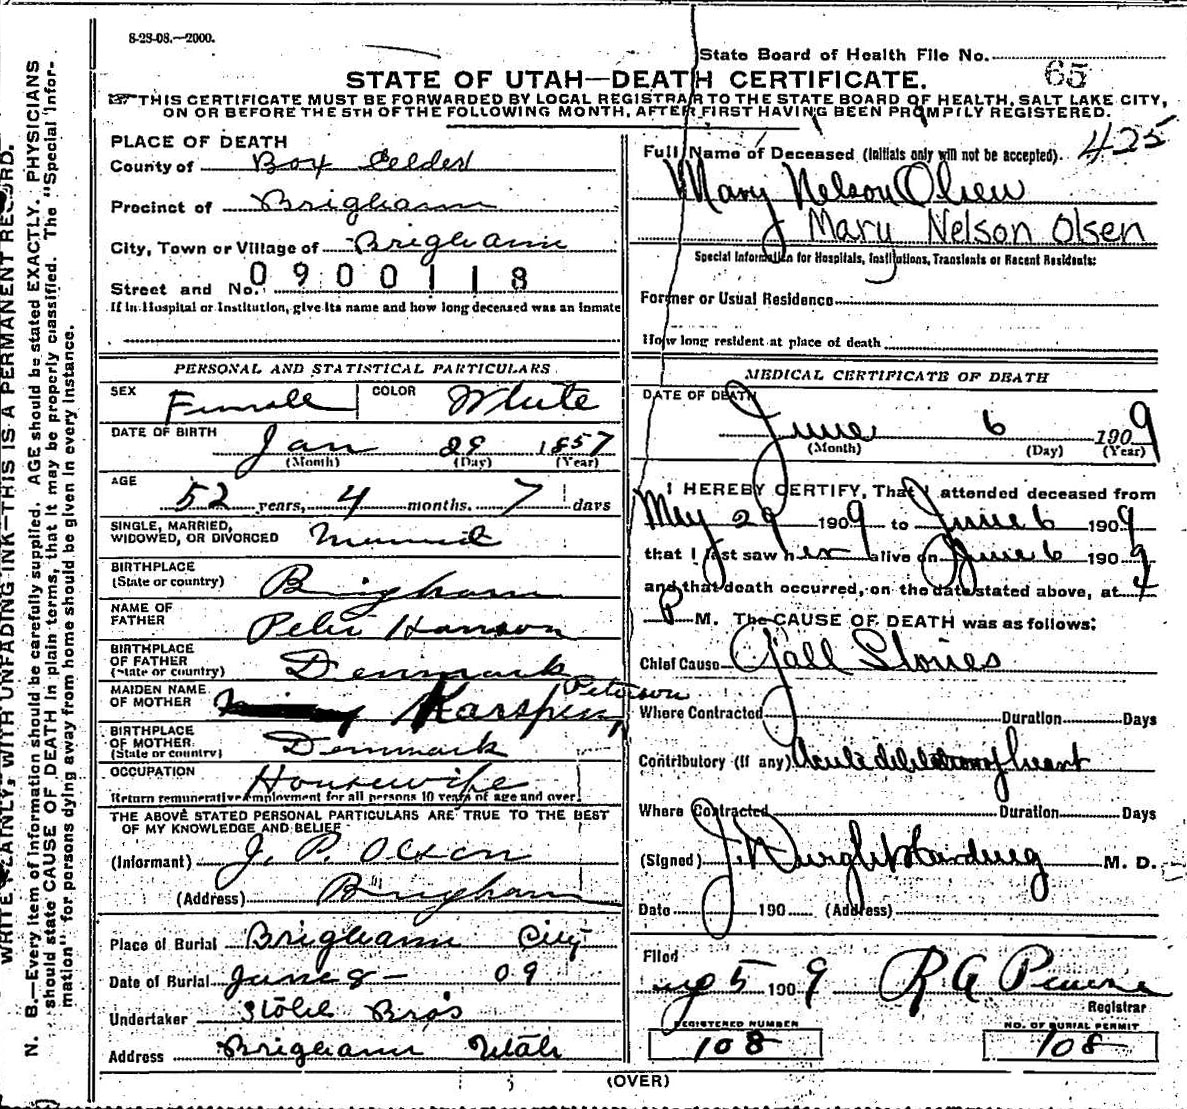 8-28-08.—2000.
State Board of Health File No. 65
STATE OF UTAH—DEATH CERTIFICATE.
THIS CERTIFICATE MUST BE FORWARDED BY LOCAL REGISTRAR TO THE STATE BOARD OF HEALTH, SALT LAKE CITY,
ON OR BEFORE THE 5TH OF THE FOLLOWING MONTH, AFTER FIRST HAVING BEEN PROMPTLY REGISTERED.
PLACE OF DEATH
County of Box Elder
Precinct of Brigham
City, Town or Village of Brigham
0900118
Street and No.
If in Hospital or Institution, give its name and how long deceased was an inmate
425
Full Name of Deceased (Initials only will not be accepted).
Mary Nelson Olsen
Mary Nelson Olsen
Special Information for Hospitals, Institutions, Transients or Recent Residents:
Former or Usual Residence
How long resident at place of death
PERSONAL AND STATISTICAL PARTICULARS
SEX Female COLOR White
DATE OF BIRTH
Jan 29 1857
(Month) (Day) (Year)
AGE
52 years, 4 months, 7 days
SINGLE, MARRIED,
WIDOWED, OR DIVORCED Married
BIRTHPLACE
(State or country) Brigham
NAME OF
FATHER Peter Hanson
BIRTHPLACE
OF FATHER
(State or country) Denmark
MAIDEN NAME
OF MOTHER Peterson
BIRTHPLACE
OF MOTHER
(State or country) Denmark
OCCUPATION Housewife
Return remunerative employment for all persons 10 years of age and over
THE ABOVE STATED PERSONAL PARTICULARS ARE TRUE TO THE BEST
OF MY KNOWLEDGE AND BELIEF
(Informant) J. P. Olson
(Address) Brigham
Place of Burial Brigham City
Date of Burial June 8 - 09
Undertaker Bros
Address Brigham Utah
MEDICAL CERTIFICATE OF DEATH
DATE OF DEATH
June 6 1909
(Month) (Day) (Year)
I HEREBY CERTIFY, That I attended deceased from
May 29 1909 to June 6 1909
that I last saw her alive on June 6 1909
and that death occurred, on the date stated above, at
P M. The CAUSE OF DEATH was as follows:
Chief Cause Gall Stones
Where Contracted Duration Days
Contributory (if any) Acute of heart
Where Contracted Duration Days
(Signed) Harding M. D.
Date 190 (Address)
Filed
5 1909 R A
Registrar
REGISTERED NUMBER
108
NO. OF BURIAL PERMIT
108
(OVER)
WRITE PLAINLY, WITH UNFADING INK—THIS IS A PERMANENT RECORD.
N. B.—Every item of information should be carefully supplied. AGE should be stated EXACTLY. PHYSICIANS
should state CAUSE OF DEATH in plain terms, that it may be properly classified. The "Special Infor-
mation" for persons dying away from home should be given in every instance.